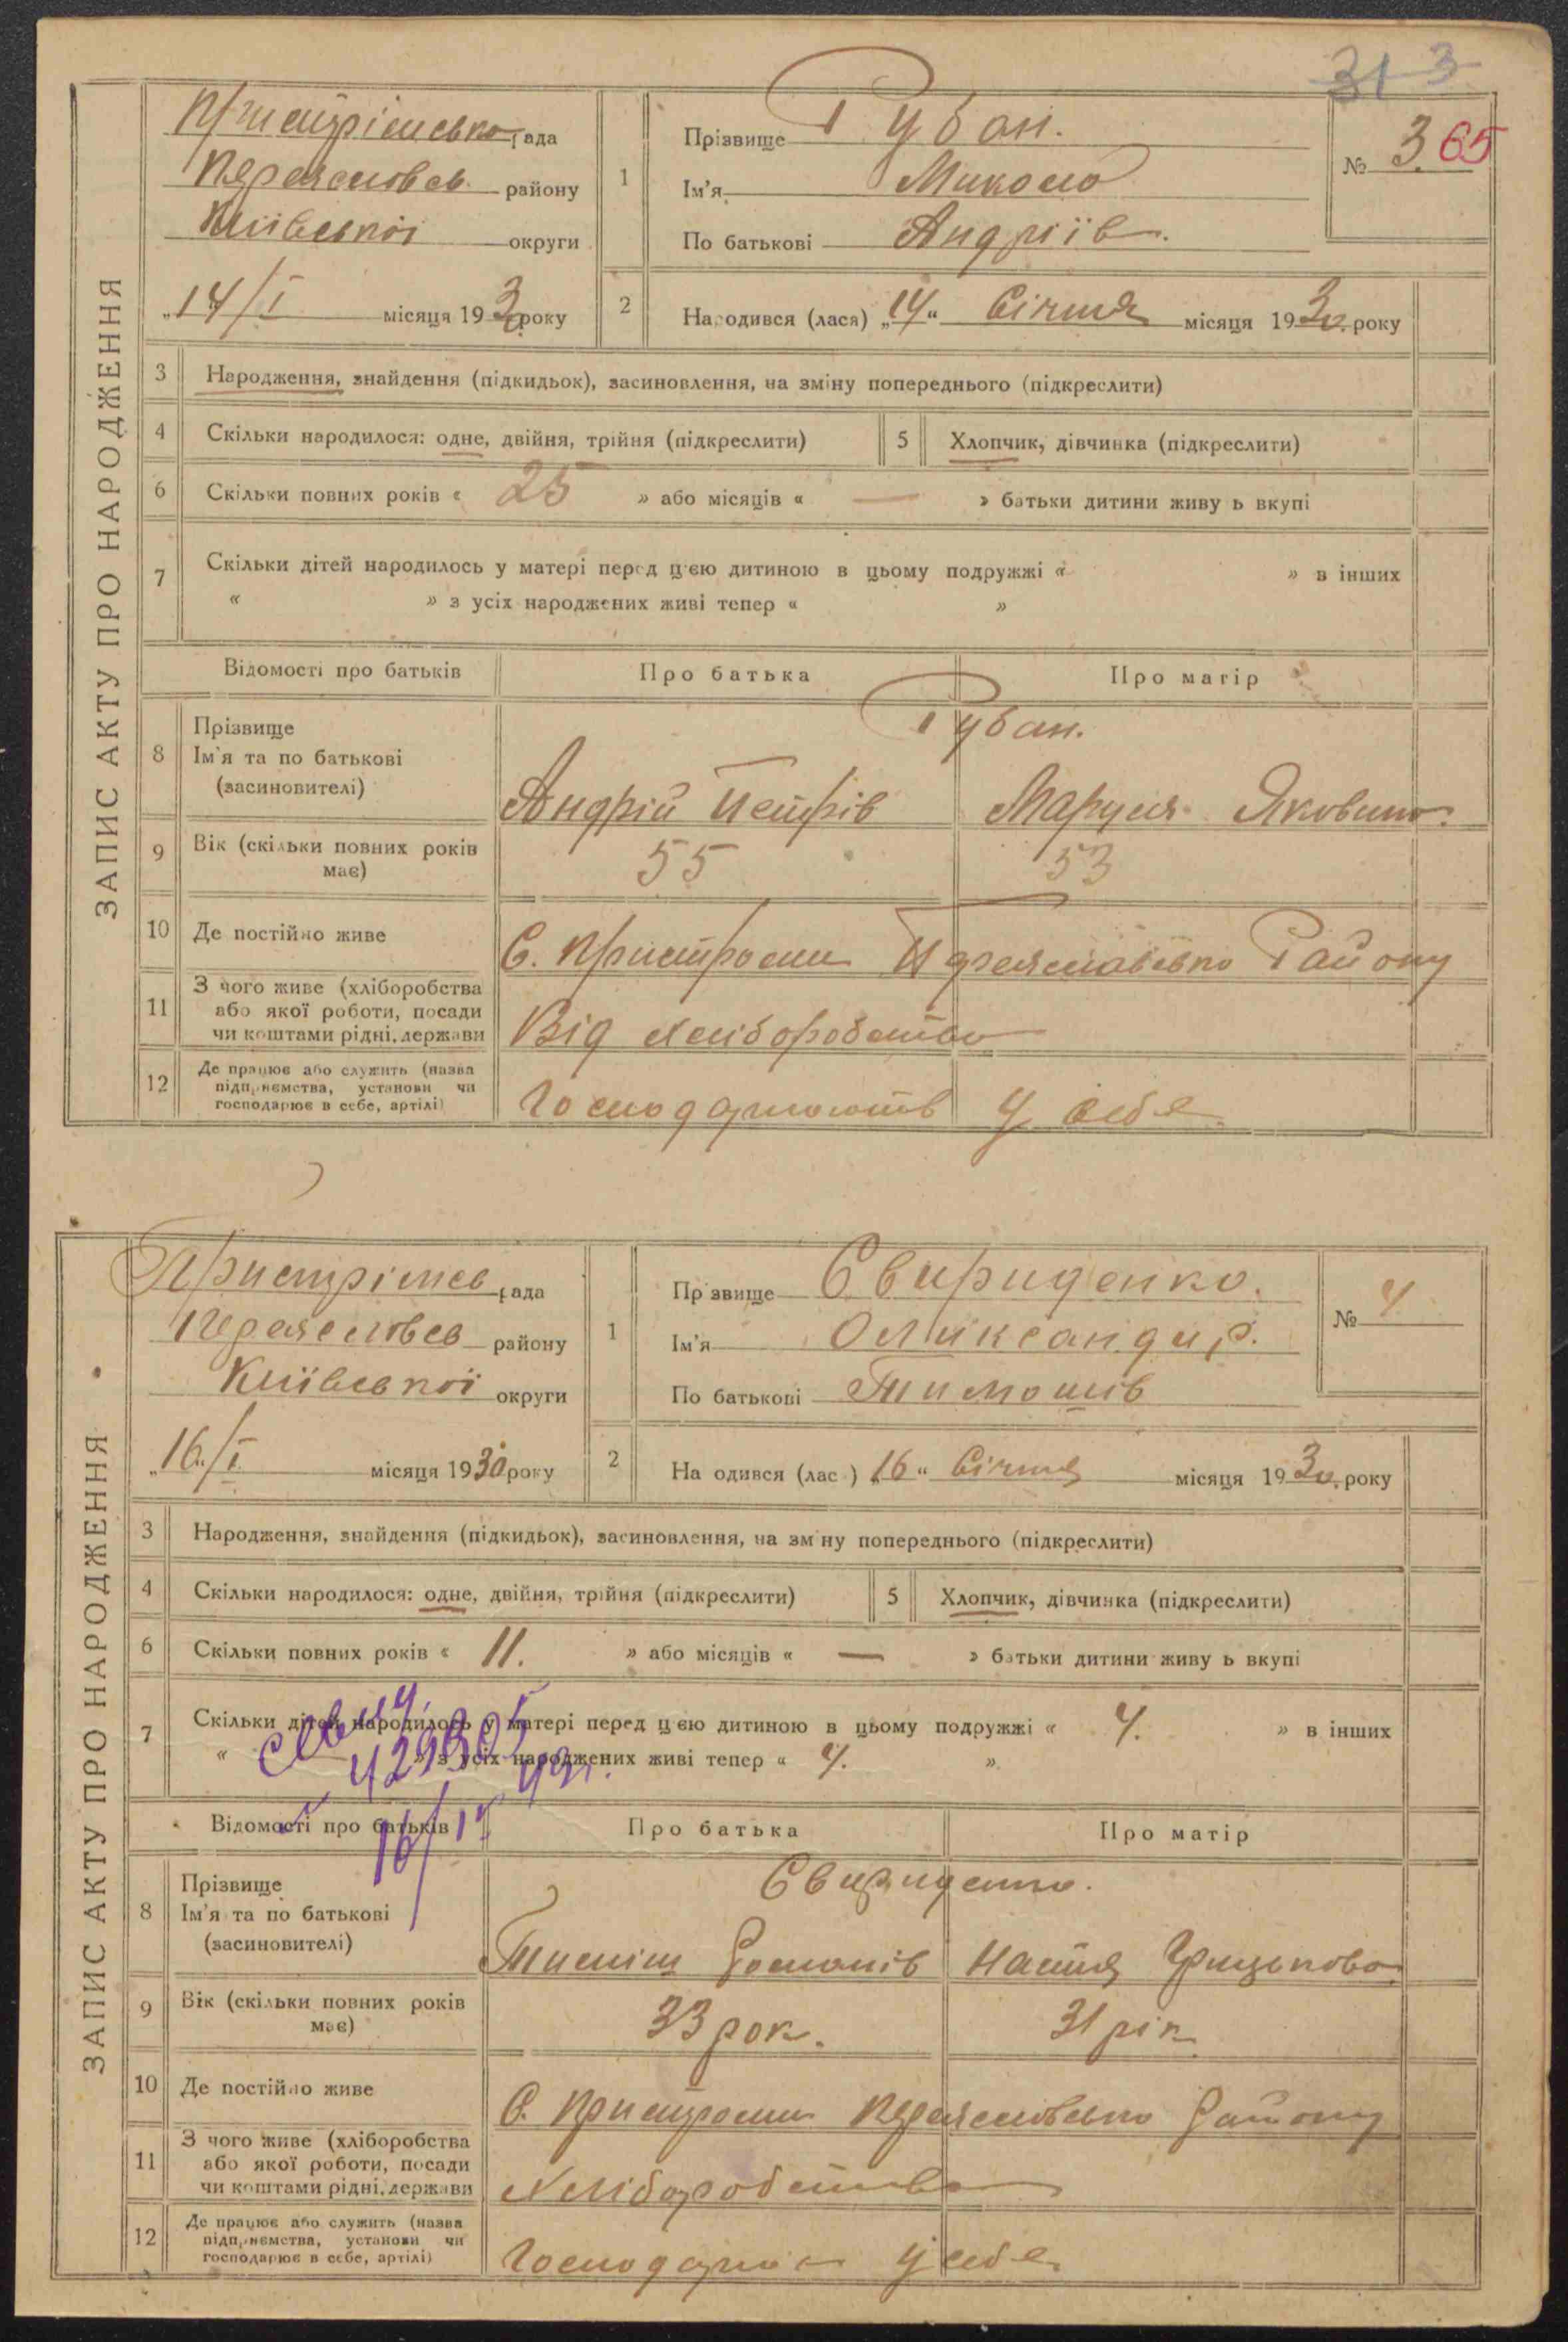 313
ЗАПИС АКТУ ПРО НАРОДЖЕННЯ
Пристрімсько рада
Переяславсь району
Київської округи
„14/I місяця 1930 року
1
Прізвище Рубан.
Ім'я Микола
По батькові Андріїв.
№ 3. 65
2
Народився (лася) „14“ Січня місяця 1930. року
3 Народження, знайдення (підкидьок), засиновлення, на зміну попереднього (підкреслити)
4 Скільки народилося: одне, двійня, трійня (підкреслити)
5 Хлопчик, дівчинка (підкреслити)
6 Скільки повних років « 25 » або місяців « — » батьки дитини живуть вкупі
7 Скільки дітей народилось у матері перед цією дитиною в цьому подружжі « » в інших
« » з усіх народжених живі тепер « »
Відомості про батьків
Про батька
Про матір
8 Прізвище
Ім'я та по батькові
(засиновителі)
Рубан.
Андрій Петрів
Маруся Яковино.
9 Вік (скільки повних років
має)
55
53
10 Де постійно живе
С. Пристроми Переяславсько Району
11 З чого живе (хліборобства
або якої роботи, посади
чи коштами рідні, держави
Від хліборобства
12 Де працює або служить (назва
підприємства, установи чи
господарює в себе, артілі)
Господарюють у себе
ЗАПИС АКТУ ПРО НАРОДЖЕННЯ
Пристрімсь рада
Переяславсь району
Київської округи
„16./I. місяця 1930 року
1
Прізвище Свириденко.
Ім'я Олександр.
По батькові Тимошів
№ 4.
2
Народився (лас ) „16“ Січня місяця 1930. року
3 Народження, знайдення (підкидьок), засиновлення, на зміну попереднього (підкреслити)
4 Скільки народилося: одне, двійня, трійня (підкреслити)
5 Хлопчик, дівчинка (підкреслити)
6 Скільки повних років « 11. » або місяців « — » батьки дитини живуть вкупі
7 Скільки дітей народилось у матері перед цією дитиною в цьому подружжі « 4. » в інших
« » з усіх народжених живі тепер « 4. »
Відомості про батьків
Про батька
Про матір
8 Прізвище
Ім'я та по батькові
(засиновителі)
Свириденко.
Тиміш Романів
Настя Грицькова
9 Вік (скільки повних років
має)
33 рок.
31 рік
10 Де постійно живе
С. Пристроми Переяславсько Району
11 З чого живе (хліборобства
або якої роботи, посади
чи коштами рідні, держави
Хліборобства
12 Де працює або служить (назва
підприємства, установи чи
господарює в себе, артілі)
у себе